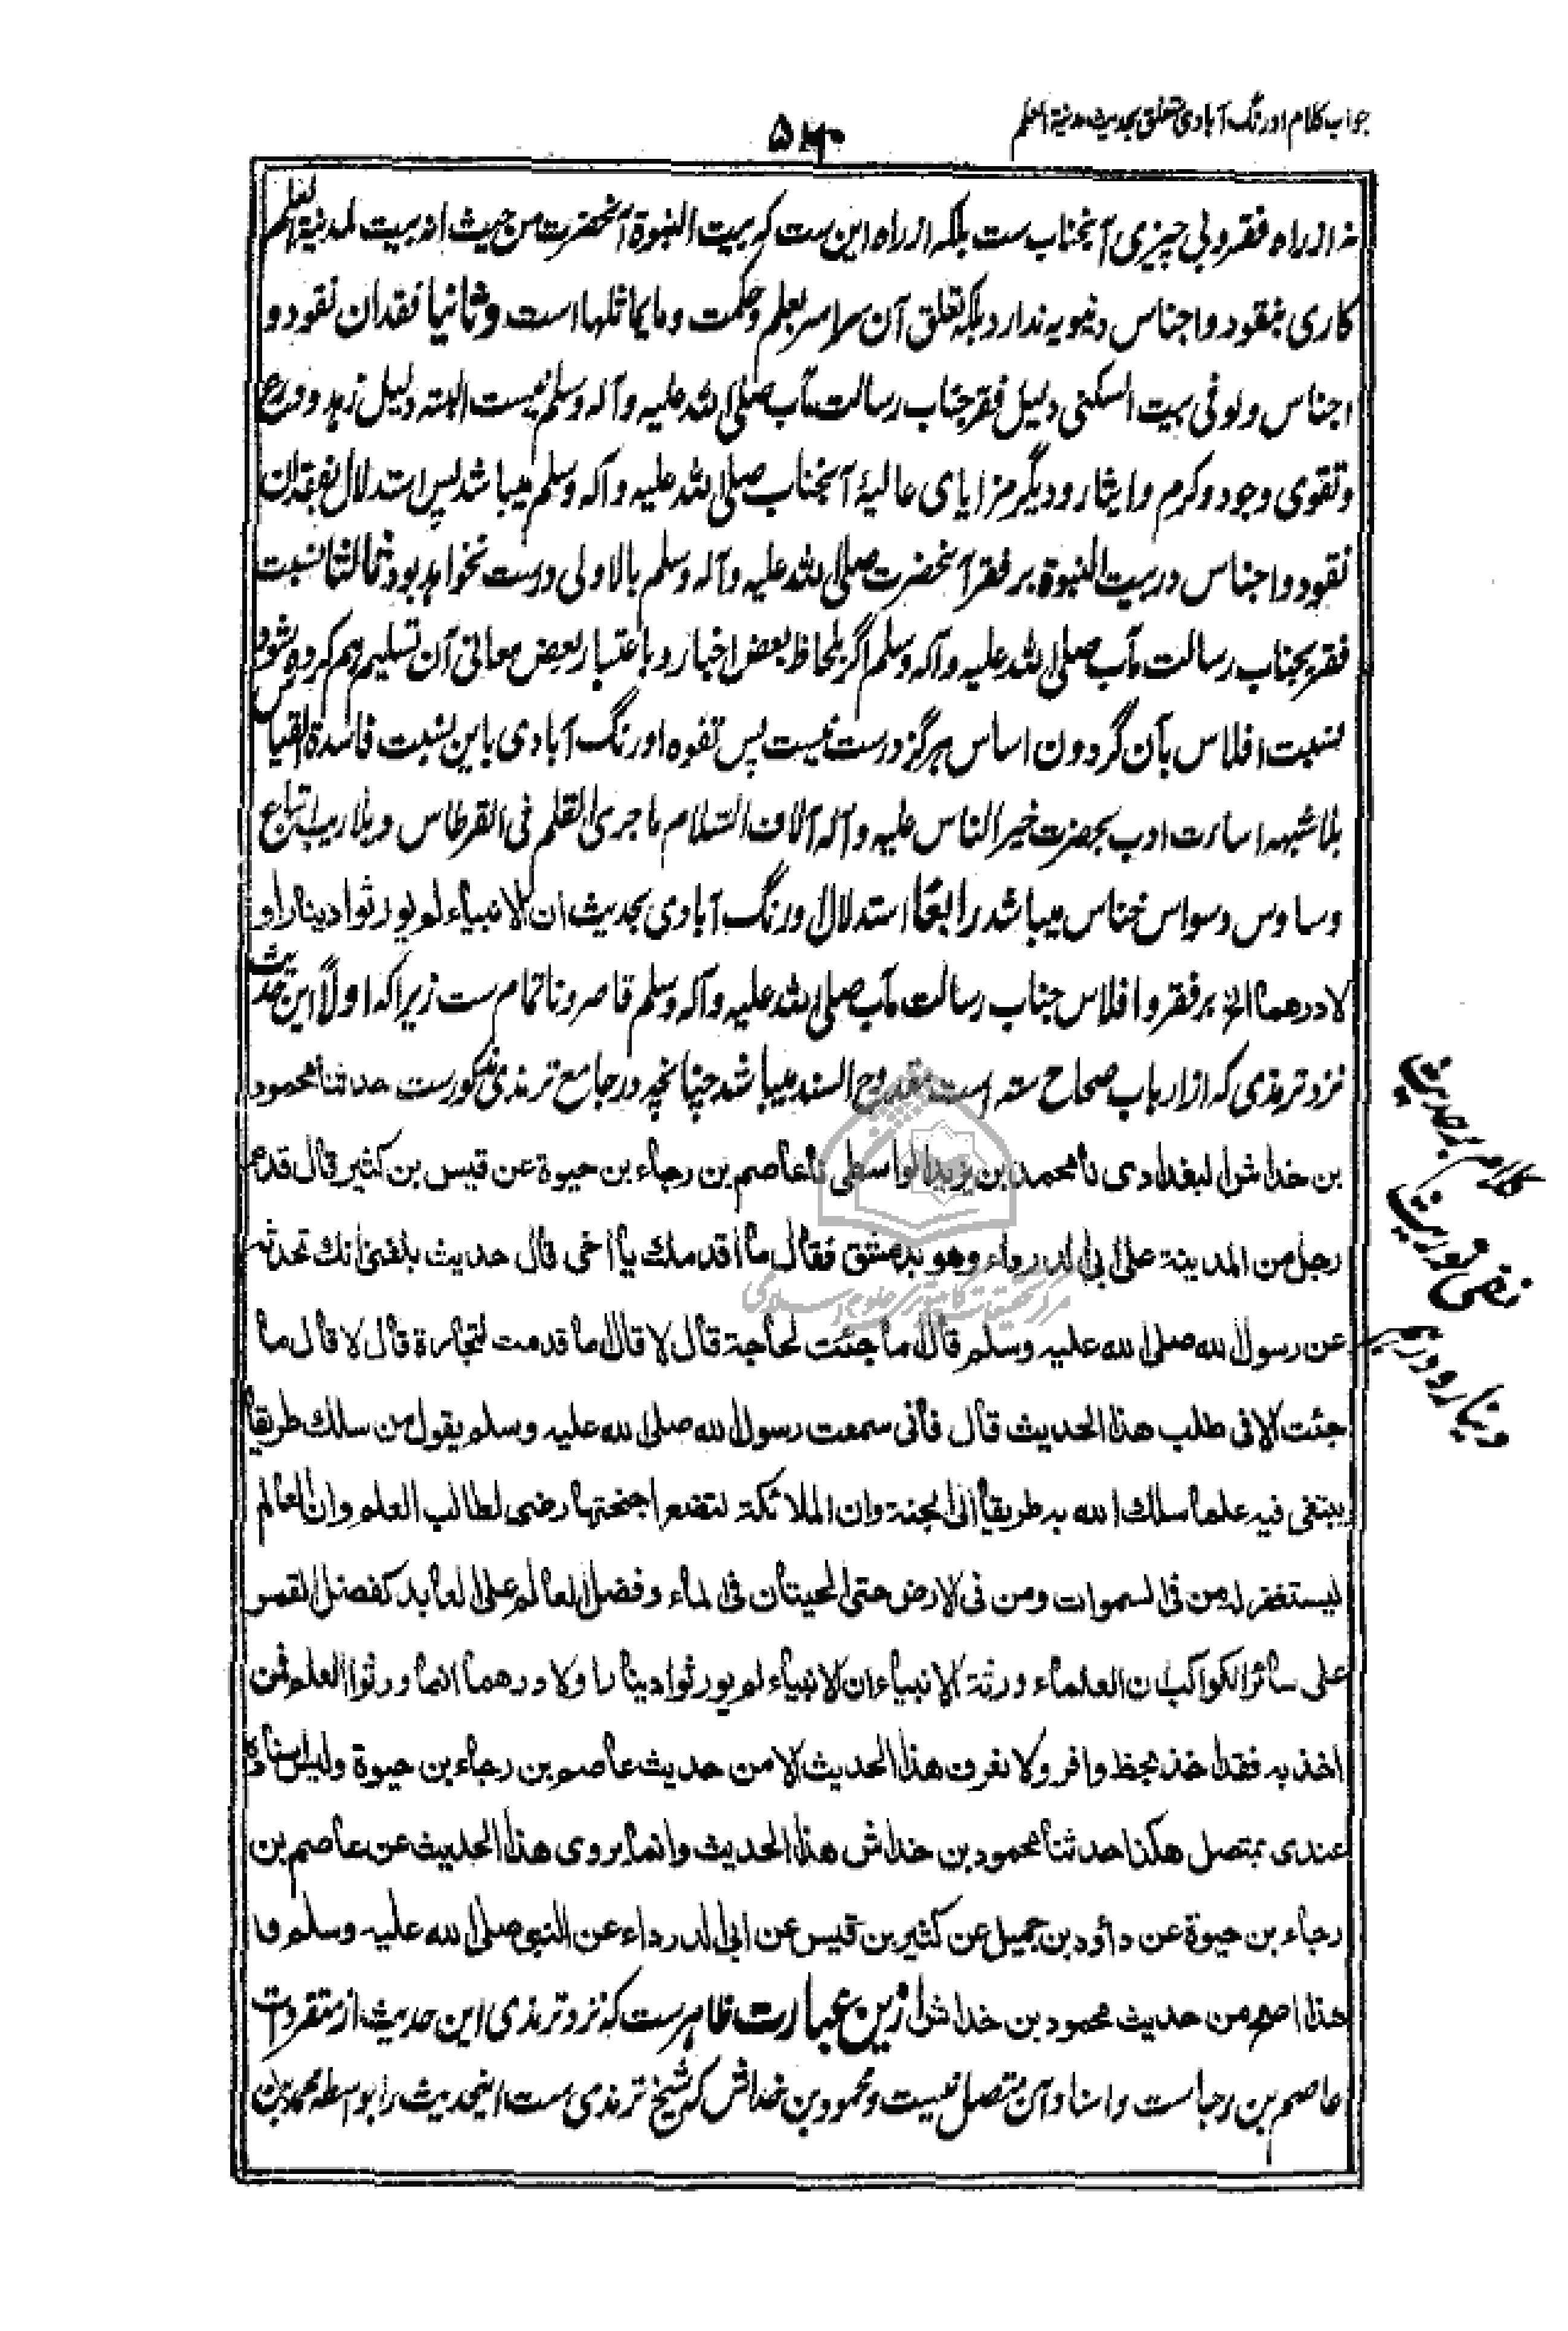 جواب کلام اورنگ آبادی متعلق بحدیث مدینة العلم
نه از راه فقر و بی چیزی آنجناب ست بلکه از راه این ست که بیت النبوة آنحضرت من حیث انه بیت لمدینة العلم
کاری بنقود و اجناس دنیویه ندارد بلکه تعلق آن سراسر بعلم و حکمت و ما یماثلها است و ثانیا فقدان نقود و
اجناس و لو فی بیت السکنی دلیل فقر جناب رسالت مآب صلی الله علیه و آله وسلم نیست البته دلیل زهد و ورع
و تقوی و جود و کرم و ایثار و دیگر مزایای عالیهٔ آنجناب صلی الله علیه و آله وسلم میباشد پس استدلال بفقدان
نقود و اجناس در بیت النبوة بر فقر آنحضرت صلی الله علیه و آله وسلم بالاولی درست نخواهد بود ثالثا نسبت
فقر بجناب رسالت مآب صلی الله علیه و آله وسلم اگر بلحاظ بعض اخبار و باعتبار بعض معانی آن تسلیم هم کرده شود
نسبت افلاس بآن گردون اساس هرگز درست نیست پس تفوه اورنگ آبادی باین نسبت فاسدة القیاس
بلا شبهه اساءت ادب بحضرت خیر الناس علیه و آله آلاف السلام ما جری القلم فی القرطاس و بلا ریب اتباع
وساوس وسواس خناس میباشد رابعًا استدلال اورنگ آبادی بحدیث ان الانبیاء لم یورثوا دینارا و
لا درهما الخ بر فقر و افلاس جناب رسالت مآب صلی الله علیه و آله وسلم قاصر و ناتمام ست زیرا که اولًا این حدیث
نزد ترمذی که از ارباب صحاح سته است مقدوح السند میباشد چنانچه در جامع ترمذی مذکورست حدثنا محمود
بن خداش البغدادی نا محمد بن یزید الواسطی نا عاصم بن رجاء بن حیوة عن قیس بن کثیر قال قدم
رجل من المدینة علی ابی الدرداء وهو بدمشق فقال ما اقدمك یا اخی قال حدیث بلغنی انك تحدثه
عن رسول الله صلی الله علیه وسلم قال ما جئت لحاجة قال لا قال ما قدمت لتجارة قال لا قال ما
جئت الا فی طلب هذا الحدیث قال فانی سمعت رسول الله صلی الله علیه وسلم یقول من سلك طریقا
یبتغی فیه علما سلك الله به طریقا الی الجنة وان الملائكة لتضع اجنحتها رضی لطالب العلم وان العالم
لیستغفر له من فی السموات ومن فی الارض حتی الحیتان فی الماء وفضل العالم علی العابد كفضل القمر
علی سائر الكواكب ان العلماء ورثة الانبیاء ان الانبیاء لم یورثوا دینارا ولا درهما انما ورثوا العلم فمن
اخذ به فقد اخذ بحظ وافر ولا نعرف هذا الحدیث الا من حدیث عاصم بن رجاء بن حیوة ولیس اسناده
عندی بمتصل هكذا حدثنا محمود بن خداش هذا الحدیث وانما یروی هذا الحدیث عن عاصم بن
رجاء بن حیوة عن داؤد بن جمیل عن كثیر بن قیس عن ابی الدرداء عن النبی صلی الله علیه وسلم و
هذا اصح من حدیث محمود بن خداش ازین عبارت ظاهرست که نزد ترمذی این حدیث از متفردات
عاصم بن رجاست و اسناد آن متصل نیست و محمود بن خداش که شیخ ترمذی ست اینحدیث را بواسطه محمد بن
کلام بر حدیث
نفی توریث
دینار و درهم
مرکز تحقیقات کامپیوتری علوم اسلامی